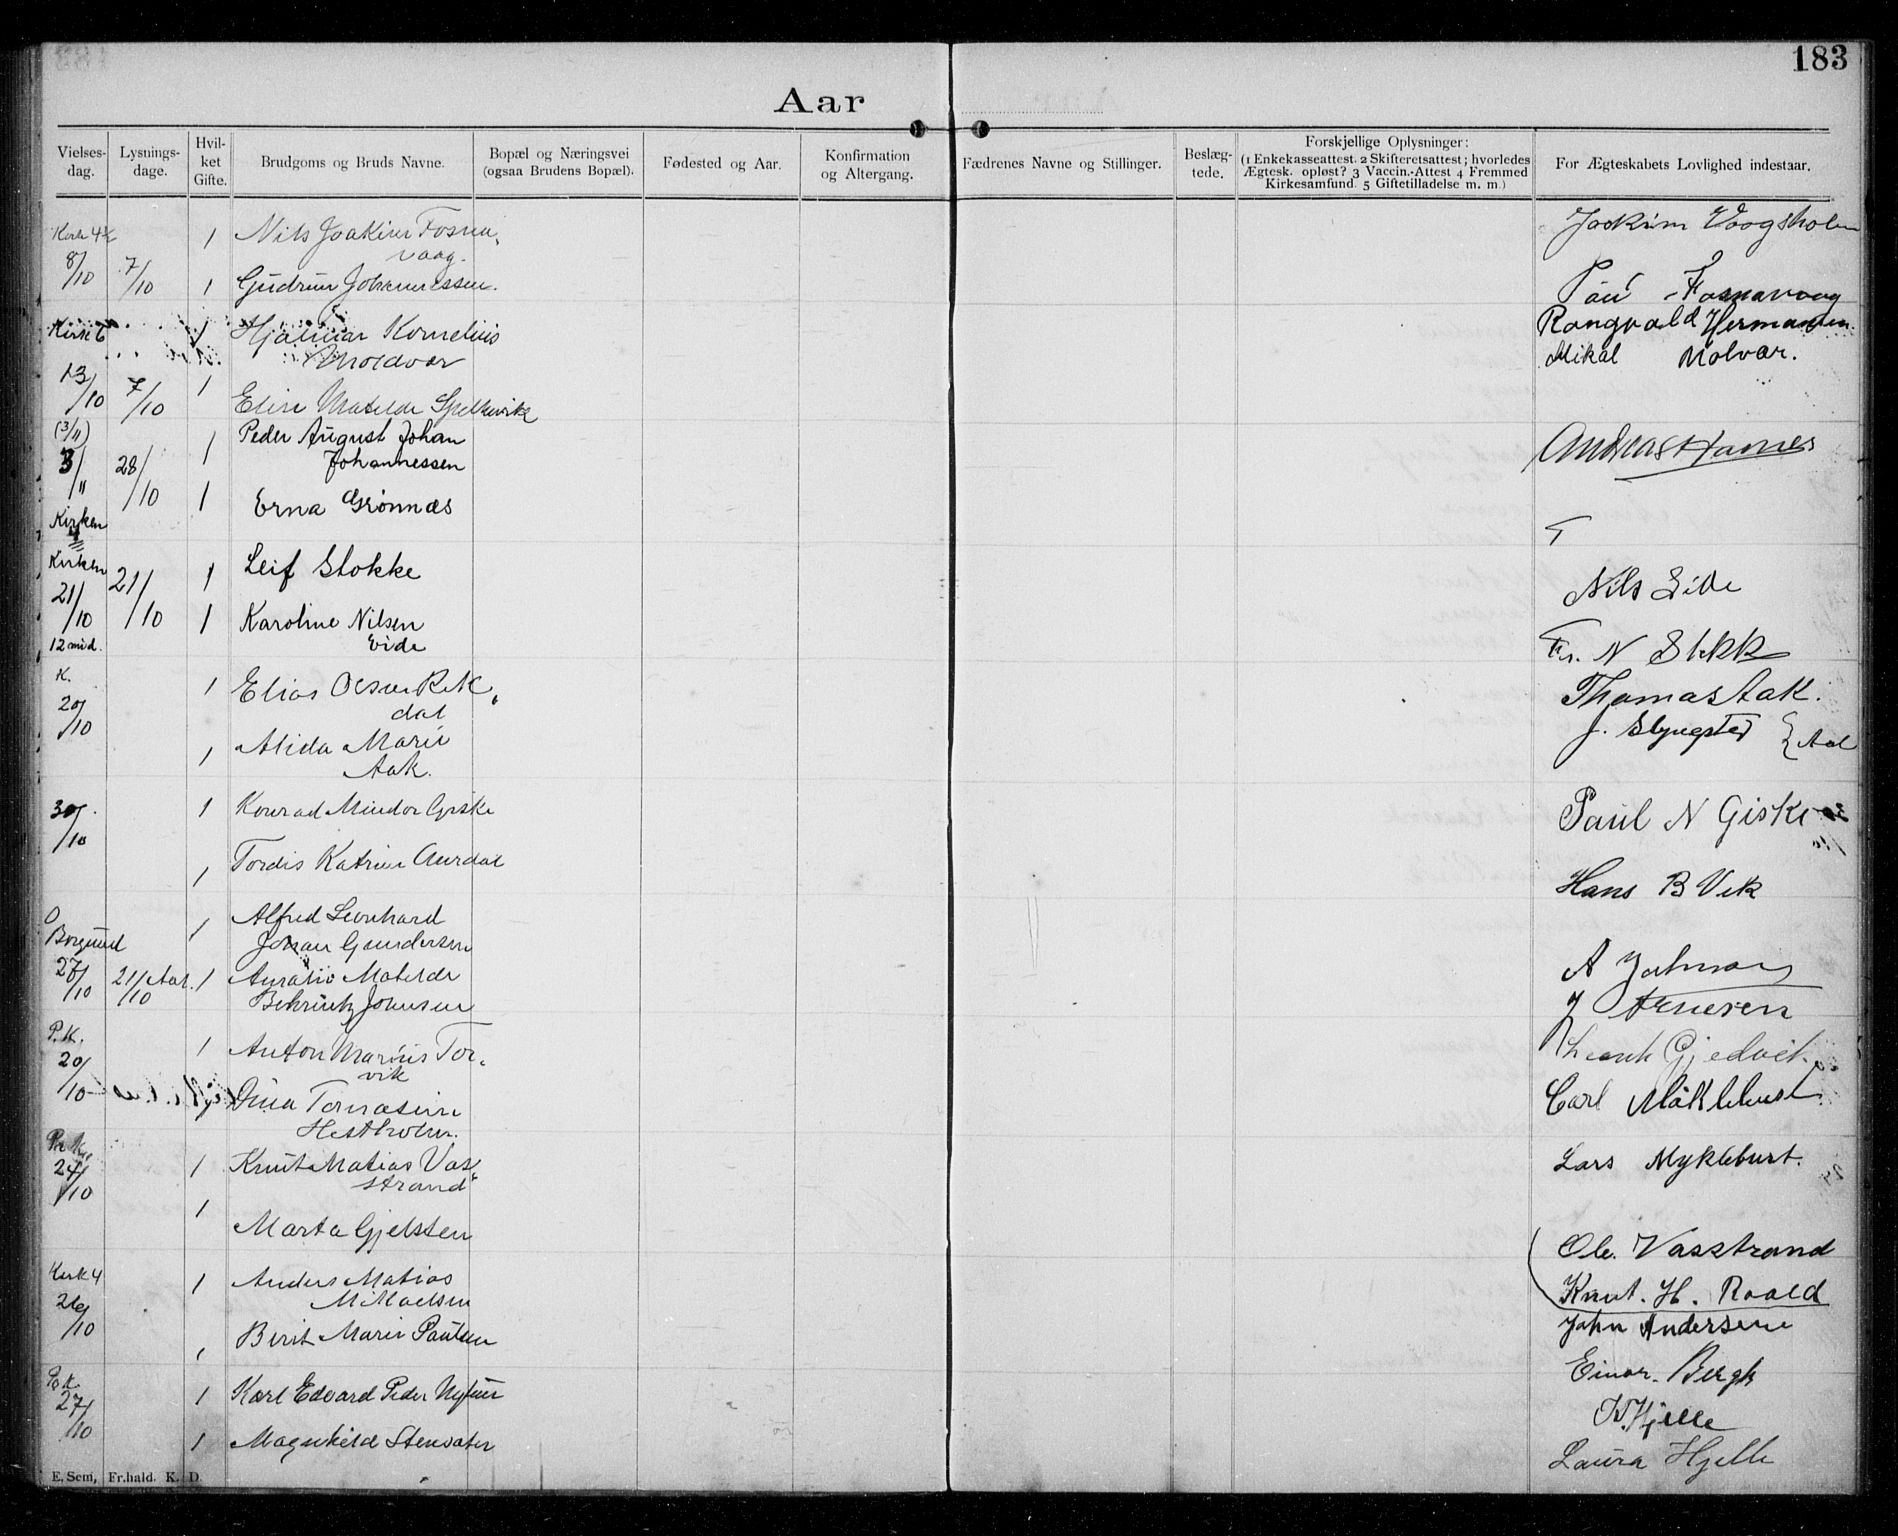 183
Aar
Vielses-
dag.
Lysnings-
dage.
Hvil-
ket
Gifte.
Brudgoms og Bruds Navne.
Bopæl og Næringsvei
(ogsaa Brudens Bopæl).
Fødested og Aar.
Konfirmation
og Altergang.
Fædrenes Navne og Stillinger.
Beslæg-
tede.
Forskjellige Oplysninger:
(1 Enkekasseattest. 2 Skifteretsattest; hvorledes
Ægtesk. opløst? 3 Vaccin.-Attest 4 Fremmed
Kirkesamfund. 5 Giftetilladelse m. m.)
For Ægteskabets Lovlighed indestaar.
1 Nils Joakim Fosna-
vaag.
Joakim Vaagsholm
8/10 7/10 1 Gudrun Johannessen.
Paul Fosnavaag
1 Hjalmar Kornelius
Moldvær
Rangvald Hermansen
Mikal Molvær.
13/10 7/10 1 Elise Matilde Spelkavik
(3/11)
3/11 28/10 1 Peder August Johan
Johannessen
Andreas Hannes
1 Erna Grønnæs
Kirken
Kirken
21/10 21/10 1 Leif Stokke
Nils Eide
1 Karoline Nilsen
Eide
12 mid.
Fr. N Stokk
K.
20/10 1 Elias Olsen Rek-
dal
Thomas Aak.
1 Alida Marie
Aak.
J. Slyngstad Aal
30/10 1 Konrad Mindor Giske
Paul N Giske
1 Tordis Katrine Aurdal
Hans B Vik
Borgund
27/10 21/10 Aal. 1 Alfred Leonhard
Johan Gundersen
1 Matilde
Johnsen
A
J Arnesen
P.K.
20/10 1 Anton Marius Tor-
vik
Gjedvik
Dina Tomasine
Hestholm.
Carl Mäklebust
24/10 1 Knut Matias Vas-
strand
Lars Myklebust.
1 Marta Gjelsten
Ole. Vasstrand
Kirk 4
26/10 1 Anders Matias
Mikkelsen
Knut. H. Roald
1 Berit Marie Paulsen
John Andersene
27/10 1 Karl Edvard Peder Myhre
Einar. Bergh
K. Hjelle
1 Magnhild Stensæter
Laura Hjelle
E. Sem, Fr.hald. K. D.